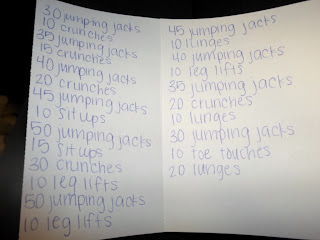 30 jumping jacks
10 crunches
35 jumping jacks
15 crunches
40 jumping jacks
20 crunches
45 jumping jacks
10 sit ups
50 jumping jacks
15 sit ups
30 crunches
10 leg lifts
50 jumping jacks
10 leg lifts
45 jumping jacks
10 lunges
40 jumping jacks
10 leg lifts
35 jumping jacks
20 crunches
10 lunges
30 jumping jacks
10 toe touches
20 lunges